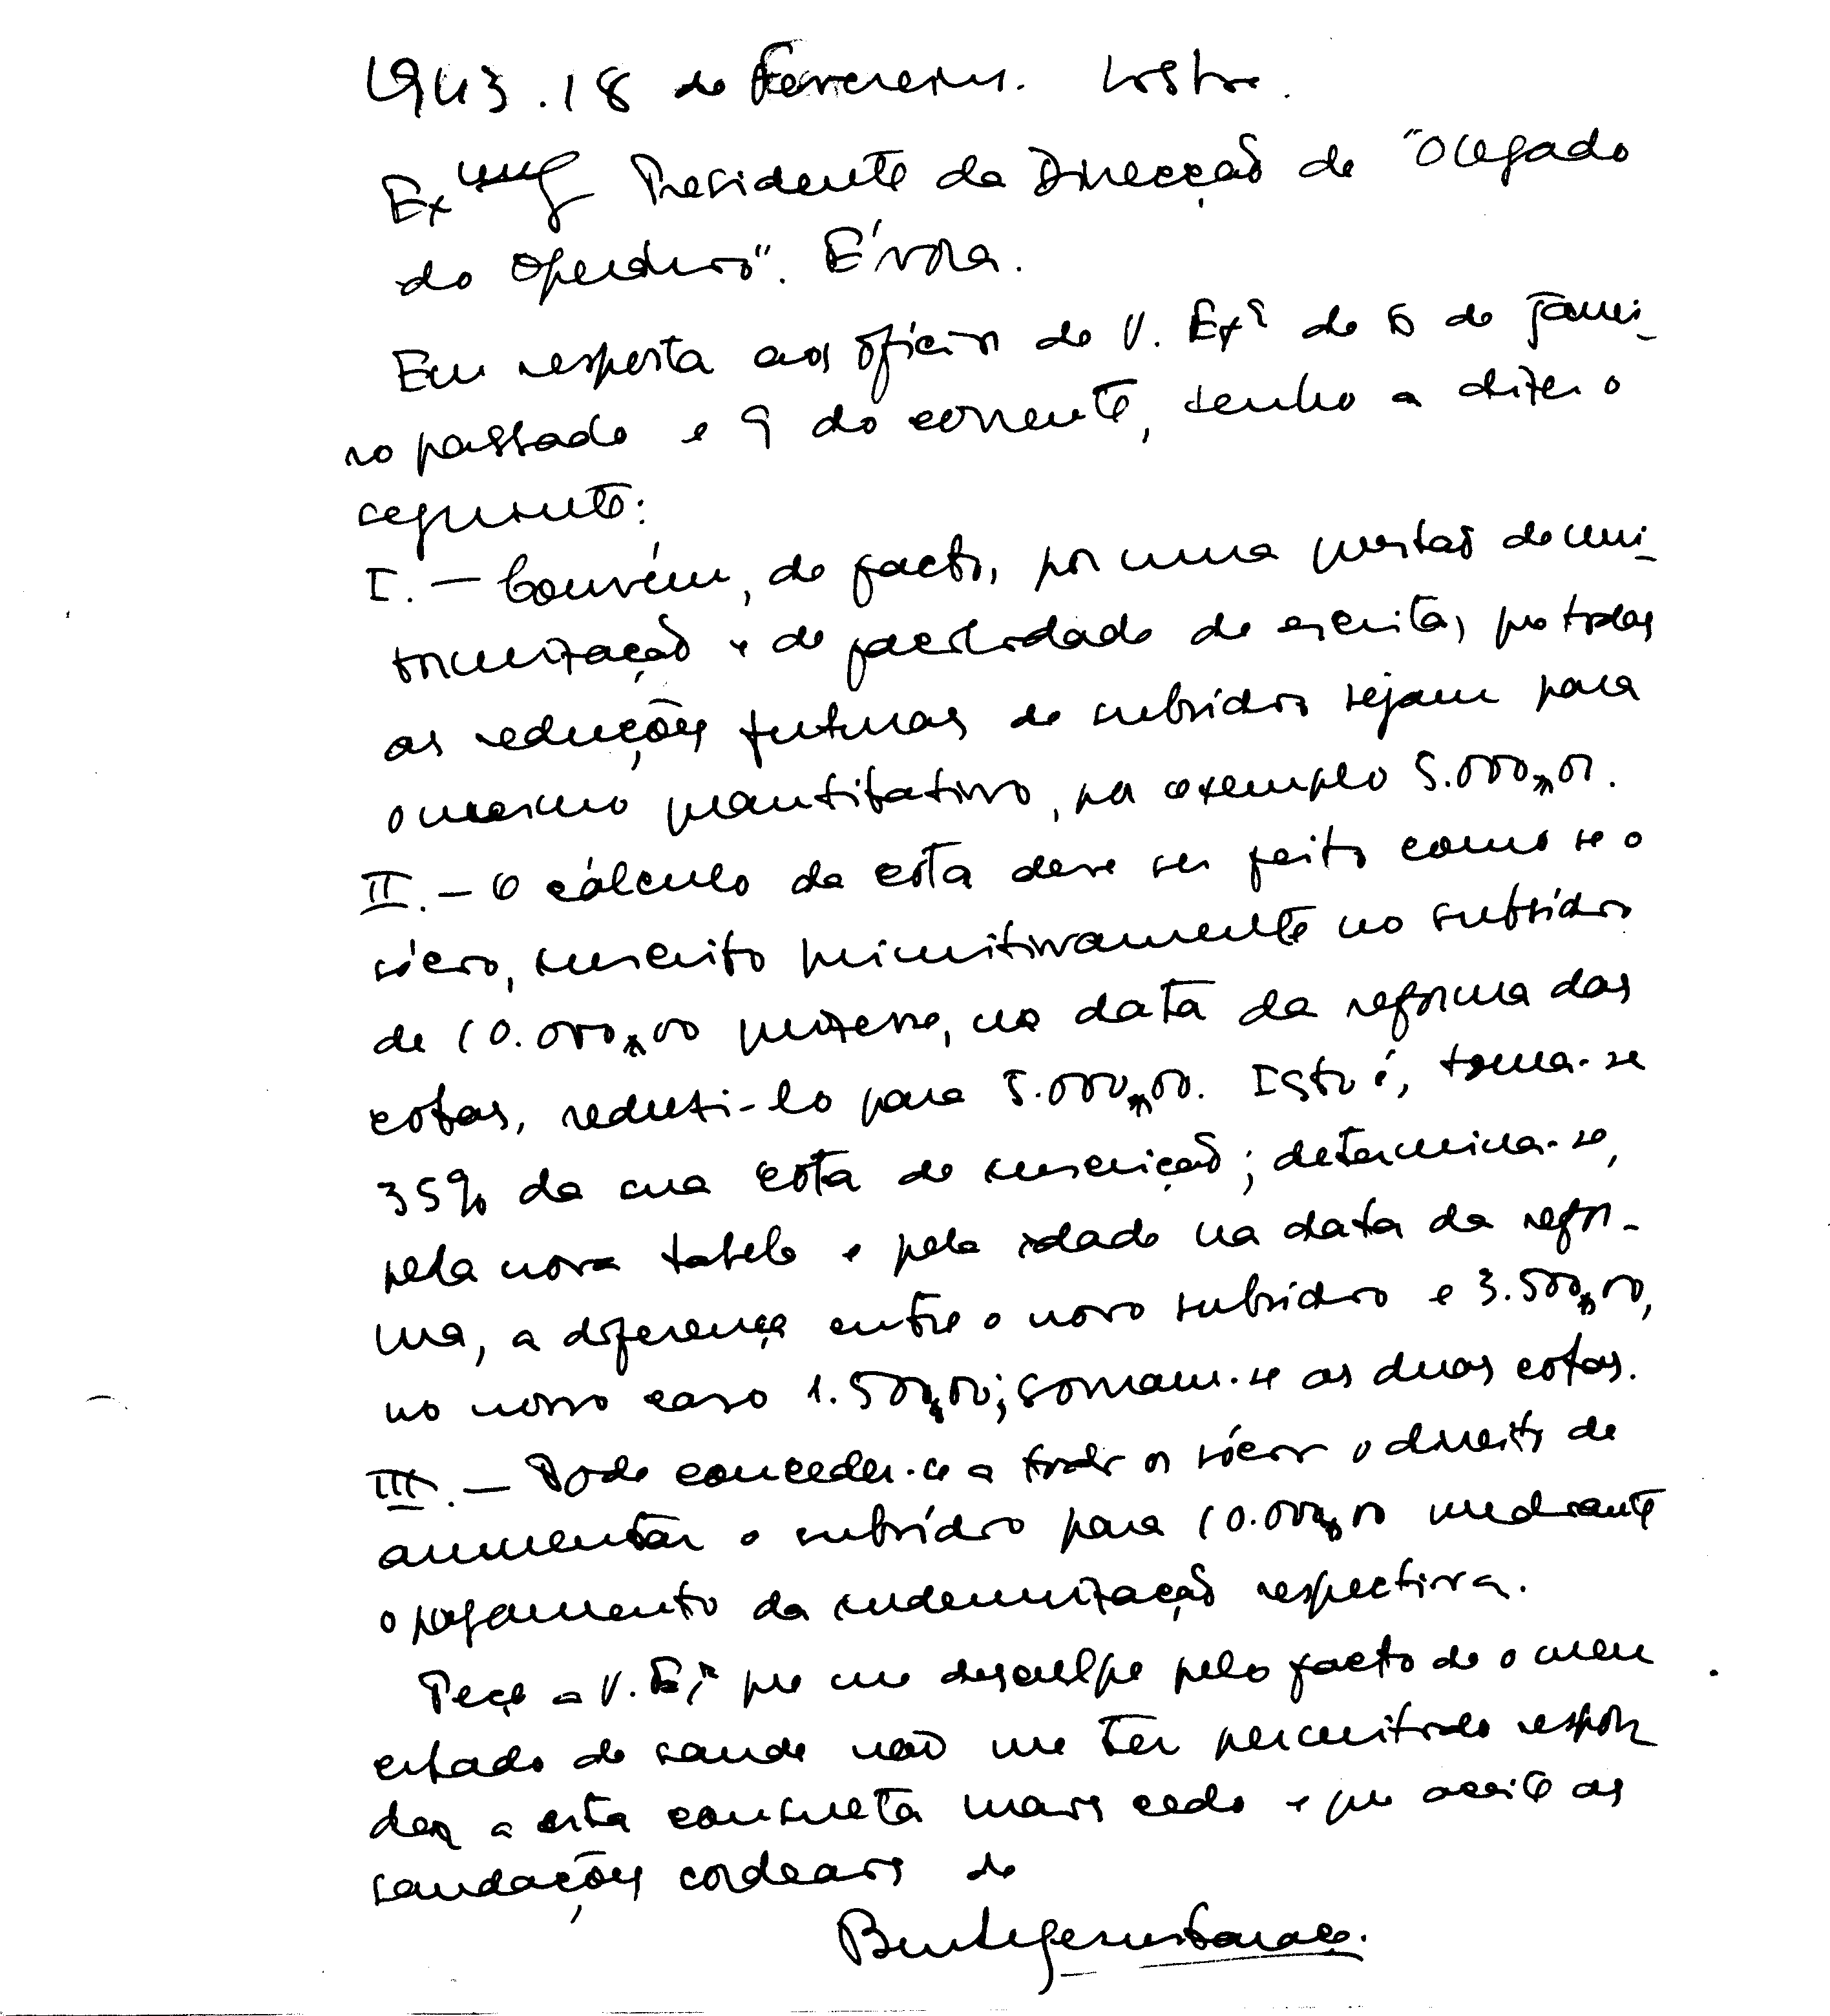 1943.18 de Fevereiro. Lisboa.
Exmo Presidente da Direcção de "O Legado
do Operário". Évora.
Em resposta aos ofícios de V. Exª de 5 de Janei-
ro passado e 9 do corrente, tenho a dizer o
seguinte:
I. — Convém, de facto, por uma questão de uni-
formização e de facilidade de escrita, que todas
as reduções futuras de subsídio sejam para
o mesmo quantitativo, por exemplo 5.000$00.
II. — O cálculo da cota deve ser feito como se o
sócio, inscrito primitivamente no subsídio
de 10.000$00 quizesse, na data da reforma das
cotas, reduzi-lo para 5.000$00. Isto é, toma-se
35% da sua cota de inscrição; determina-se,
pela nova tabela e pela idade na data da refor-
ma, a diferença entre o novo subsídio e 3.500$00,
no nosso caso 1.500$00; somam-se as duas cotas.
III. — Pode conceder-se a todos os sócios o direito de
aumentar o subsídio para 10.000$00 mediante
o pagamento da indemnização respectiva.
Peço a V. Exª que me desculpe pelo facto de o meu
estado de saude não me ter permitido respon
der a esta consulta mais cedo e que aceite as
saudações cordeais de
Bento Jesus Caraça.